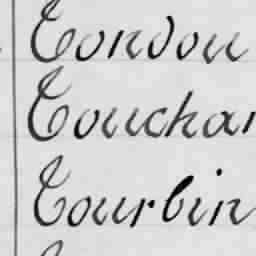 Tondou
Touchar
Tourbin